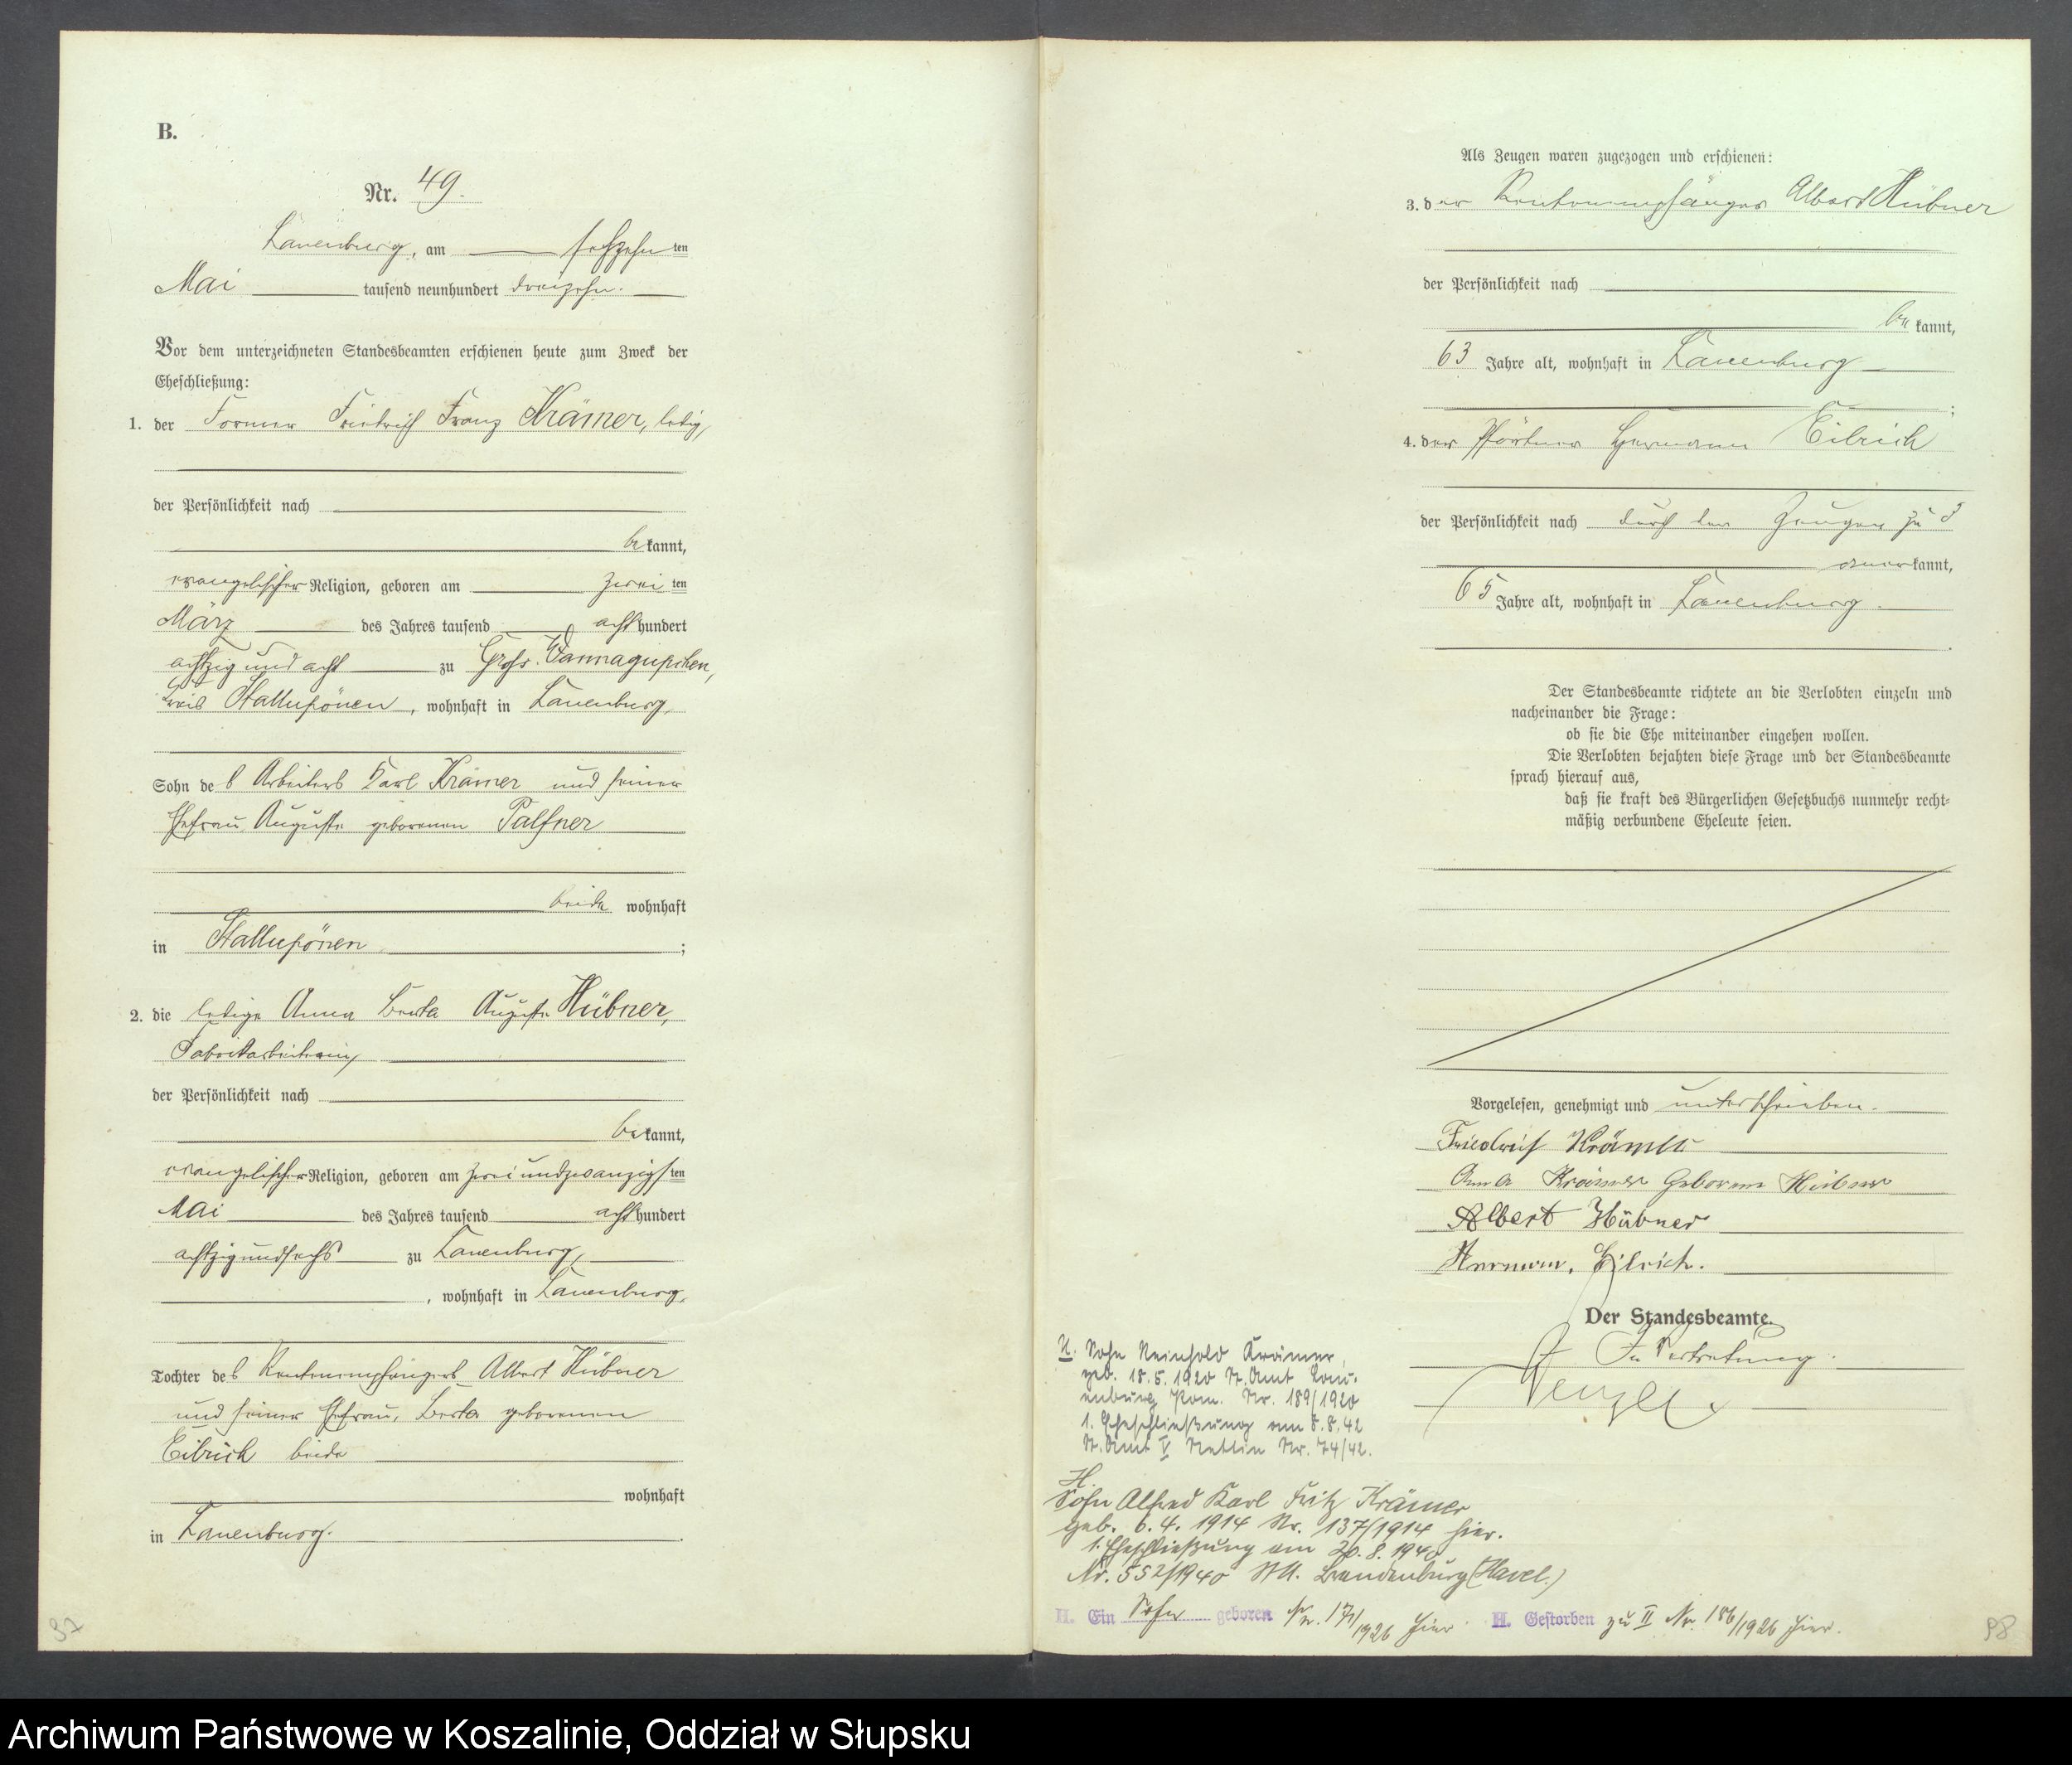 B.
Nr. 49.
Lauenburg, am sechszehnten
Mai tausend neunhundert dreizehn.
Vor dem unterzeichneten Standesbeamten erschienen heute zum Zweck der
Eheschließung:
1. der Former Friedrich Franz Krämer, ledig,
der Persönlichkeit nach
bekannt,
evangelischer Religion, geboren am zweiten
März des Jahres tausend achthundert
achtzig und acht zu Gross.
Kreis Stallupönen, wohnhaft in Lauenburg,
Sohn des Arbeiters Karl Krämer und seiner
Ehefrau Auguste geborenen Palfner
beide wohnhaft
in Stallupönen;
2. die ledige Anna Berta Auguste Hübner,
Fabrikarbeiterin,
der Persönlichkeit nach
bekannt,
evangelischer Religion, geboren am zweiundzwanzigsten
Mai des Jahres tausend achthundert
achtzigundsechs zu Lauenburg,
, wohnhaft in Lauenburg,
Tochter des Rentenempfängers Albert Hübner
und seiner Ehefrau, Berta geborenen
Eilrich beide
wohnhaft
in Lauenburg.
97
Als Zeugen waren zugezogen und erschienen:
3. der Rentenempfänger Albert Hübner
der Persönlichkeit nach
bekannt,
63 Jahre alt, wohnhaft in Lauenburg
;
4. der Pförtner Hermann Eilrich
der Persönlichkeit nach durch den Zeugen zu 3
anerkannt,
65 Jahre alt, wohnhaft in Lauenburg.
Der Standesbeamte richtete an die Verlobten einzeln und
nacheinander die Frage:
ob sie die Ehe miteinander eingehen wollen.
Die Verlobten bejahten diese Frage und der Standesbeamte
sprach hierauf aus,
daß sie kraft des Bürgerlichen Gesetzbuchs nunmehr recht-
mäßig verbundene Eheleute seien.
Vorgelesen, genehmigt und unterschrieben.
Friedrich Krämer
Anna Krämer geborene Hübner
Albert Hübner
Hermann. Eilrich.
Der Standesbeamte.
In Vertretung.
H. Sohn Reinhold Krämer,
geb. 18.5.1920 St. Amt Lau-
enburg Pom. Nr. 189/1920
1. Eheschließung am 8.8.42
St. Amt V Stettin Nr. 74/42.
H.
Sohn Alfred Karl Fritz Krämer
geb. 6.4.1914 Nr. 137/1914 hier.
1. Eheschließung am 20.8.1940
Nr. 552/1940 StA. Brandenburg (Havel.)
H. Ein Sohn geboren Nr. 171/1926 hier. H. Gestorben zu II Nr. 186/1926 hier.
98
Archiwum Państwowe w Koszalinie, Oddział w Słupsku